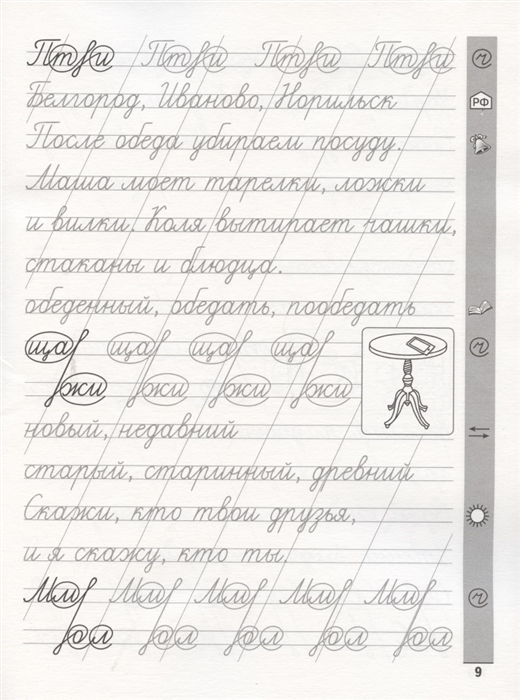 Белгород, Иваново, Норильск
РФ
После обеда убираем посуду.
Маша моет тарелки, ложки
и вилки. Коля вытирает чашки,
стаканы и блюдца.
обеденный, обедать, пообедать
ща ща ща ща
жи жи жи жи
новый, недавний
старый, старинный, древний
Скажи, кто твои друзья,
и я скажу, кто ты.
9